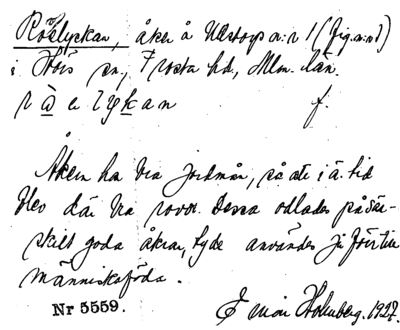 Roelyckan, åker å Ullstorps n:r 1 (fig. n:o 1)
i Hörs sn., Frosta hd., Mlm. län.
r ò e l y k a n f.
Åkern har bra jordmån, så att i ä. tid
blev där bra rovor. Dessa odlades på sär-
skilt goda åkrar, ty de användes ju förr till
människoföda.
Nr 5559.
Holmberg. 1927.